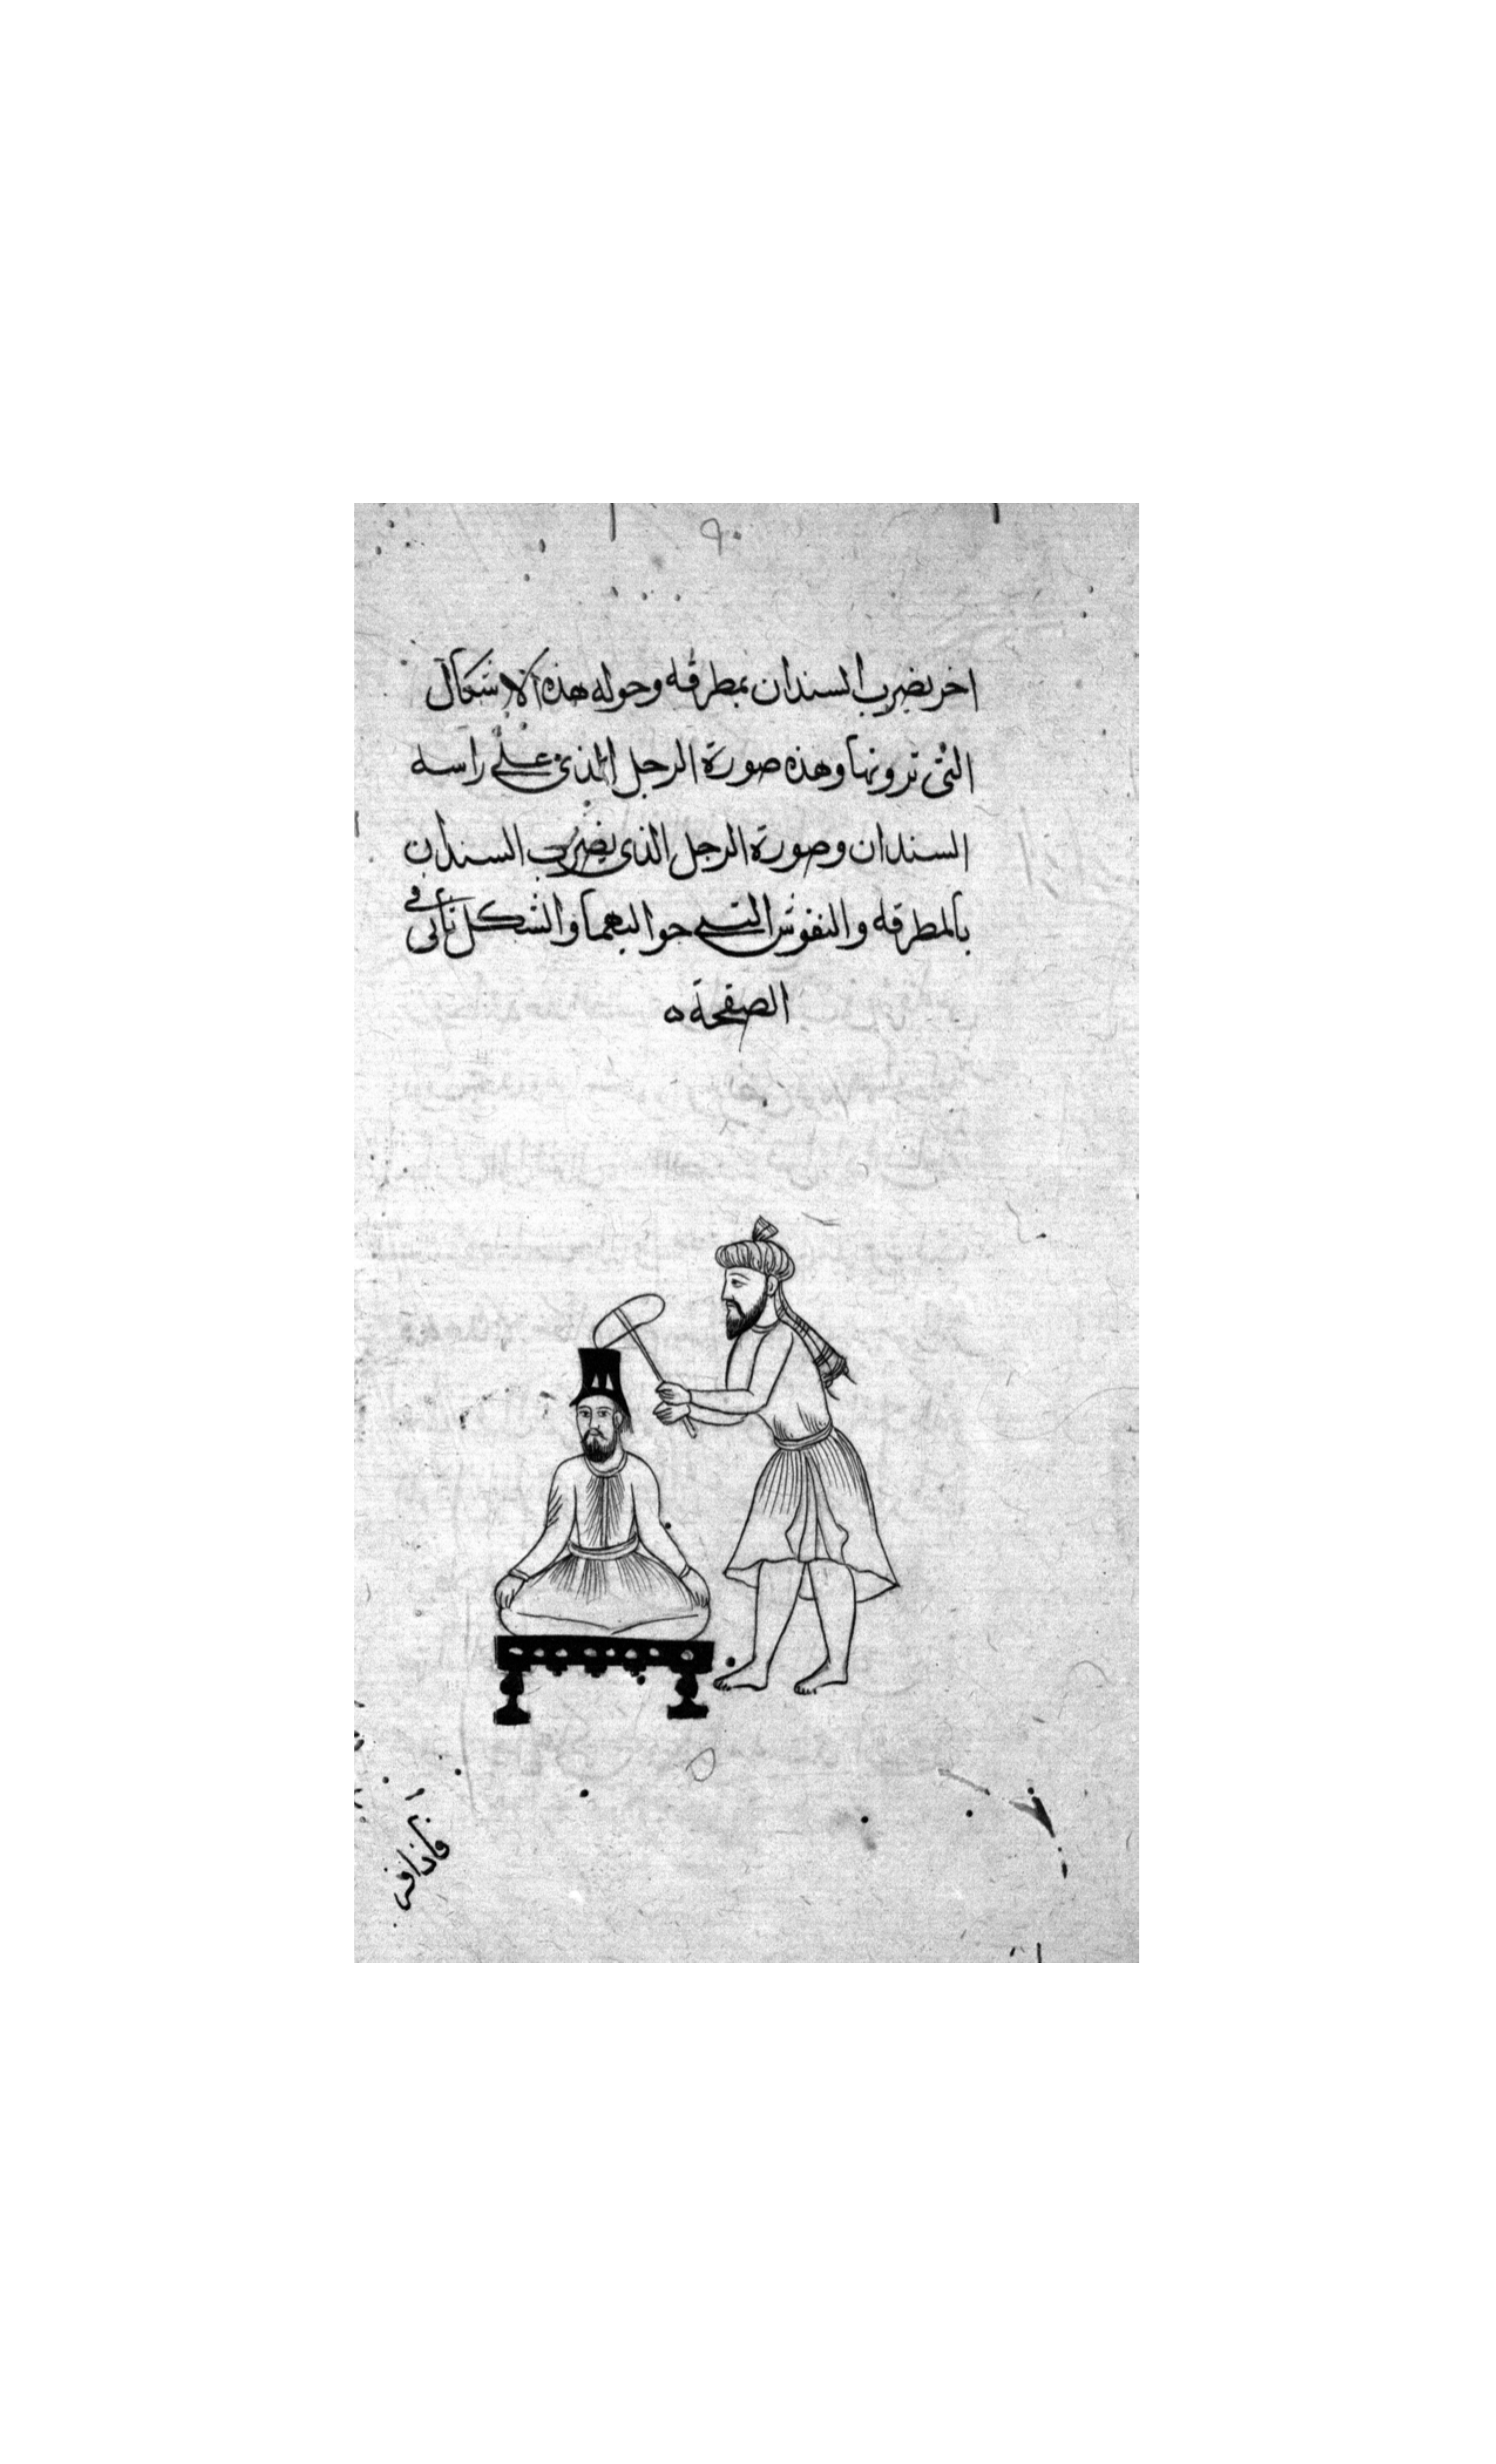 اخر يضرب السندان بمطرقه وحوله هذه الاشكال
التي ترونها وهذه صورة الرجل الذي على راسه
السندان وصورة الرجل الذي يضرب السندان
بالمطرقه والنقوش التي حواليهما والشكل تاتي في
الصفحة ه